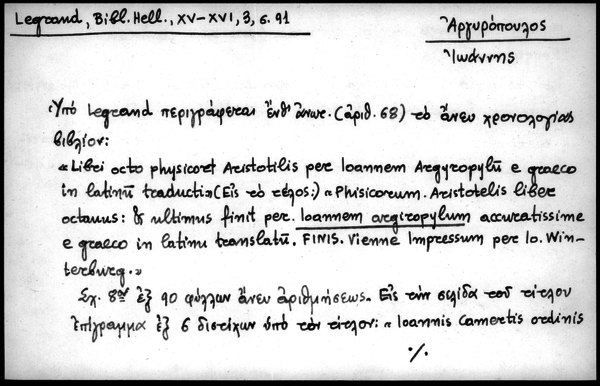 Legrand, Bibl. Hell., XV–XVI, 3, σ. 91
Ἀργυρόπουλος
Ἰωάννης
Ὑπό Legrand περιγράφεται ἔνθ' ἀνωτ. (ἀριθ. 68) τὸ ἄνευ χρονολογίας
βιβλίον:
« Libri octo physicorū Aristotilis per Ioannem Argyropylū e graeco
in latinū traducti» (Εἰς τὸ τέλος:) « Phisicorum. Aristotelis liber
octauus: & ultimus finit per. Ioannem argiropylum accuratissime
e graeco in latinu translatū. FINIS. Vienne Impressum per Io. Win-
terburg.»
Σχ. 8ον ἐξ 90 φύλλων ἄνευ ἀριθμήσεως. Εἰς τὴν σελίδα τοῦ τίτλου
ἐπίγραμμα ἐξ 6 διστίχων ὑπὸ τὸν τίτλον: « Ioannis Camertis ordinis
./.